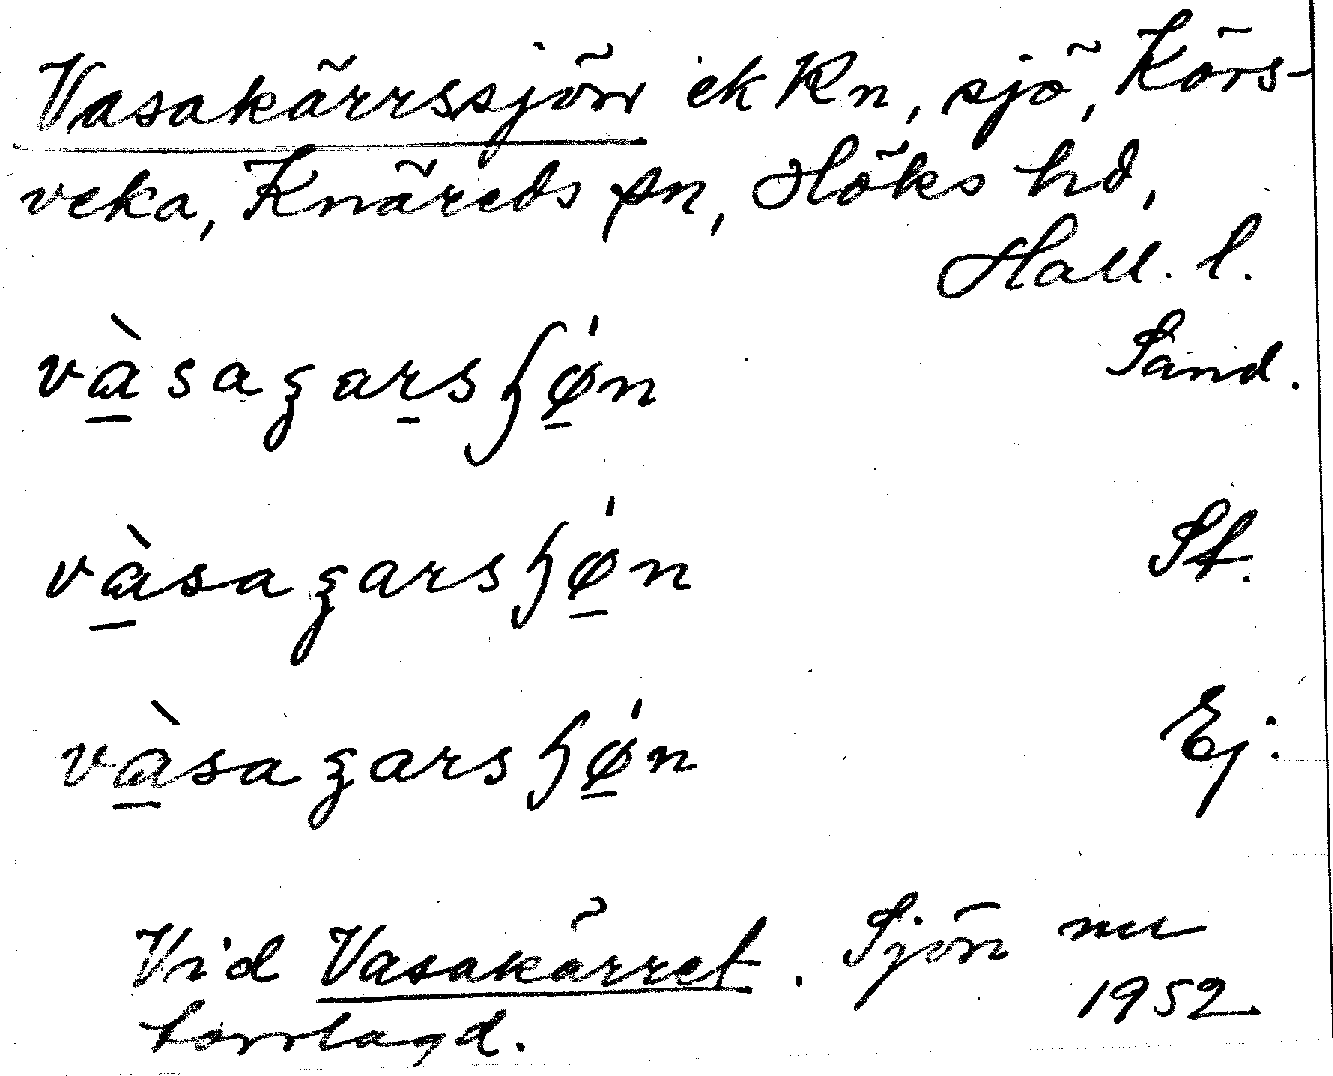 Vasakärrssjön ek Kn, sjö, Körs-
veka, Knäreds sn, Höks hd,
Hall. l.
và̱sagar̠sʃǿ̱n Sand.
và̱sagarsʃǿ̱n St.
và̱sagarsʃǿ̱n Ej.
Vid Vasakärret. Sjön nu
torrlagd. 1952